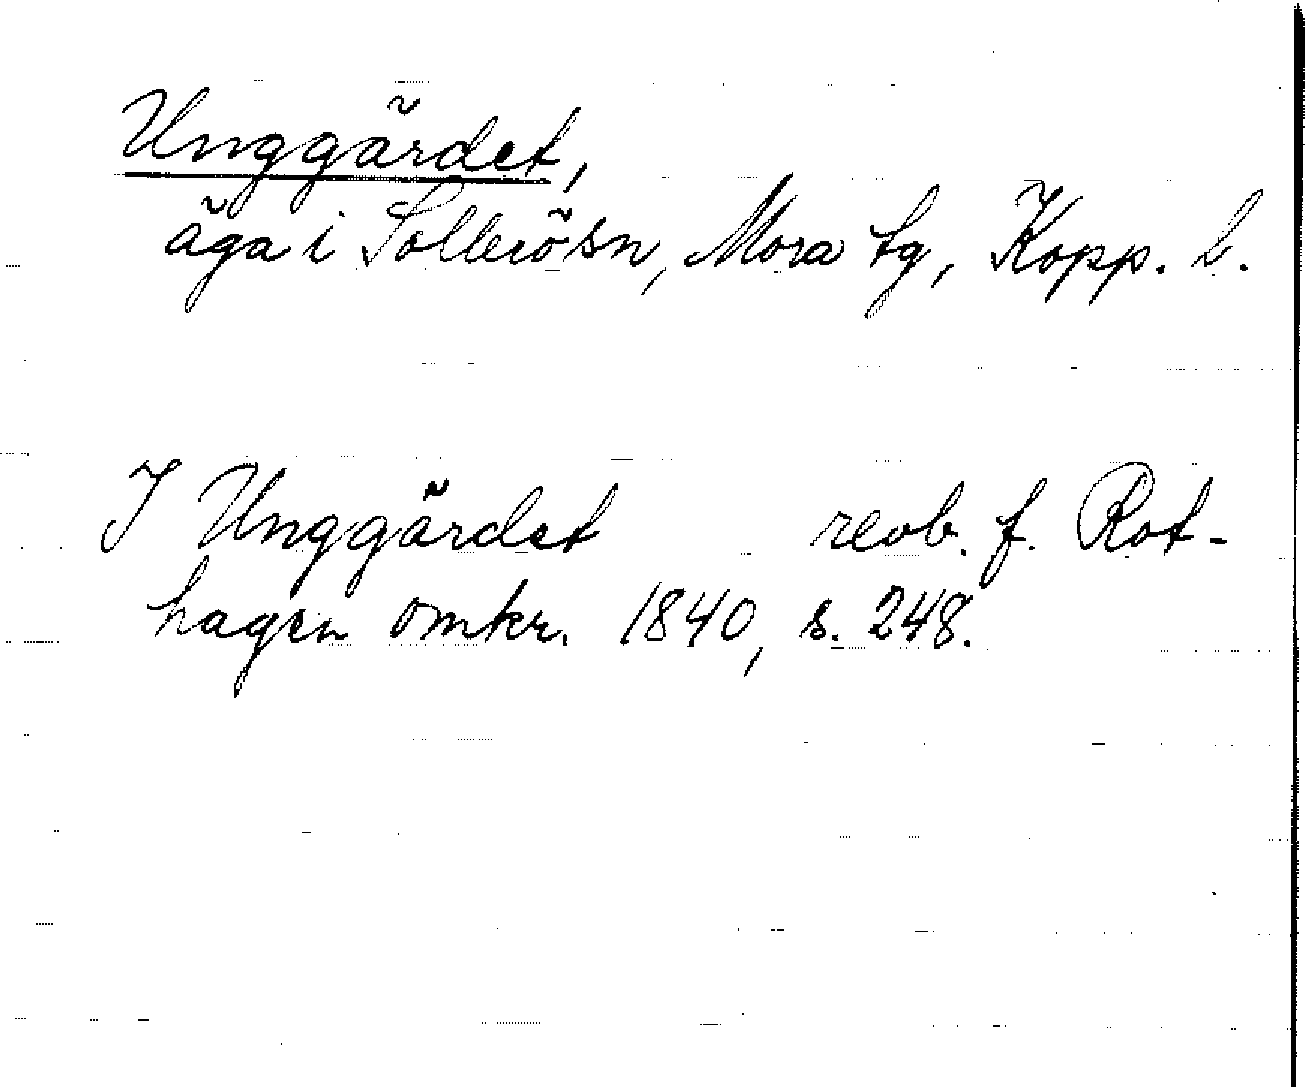 Unggärdet,
äga i Sollerösn, Mora tg, Kopp. l.
I Unggärdet revb. f. Rot-
hagen omkr. 1840, s. 248.